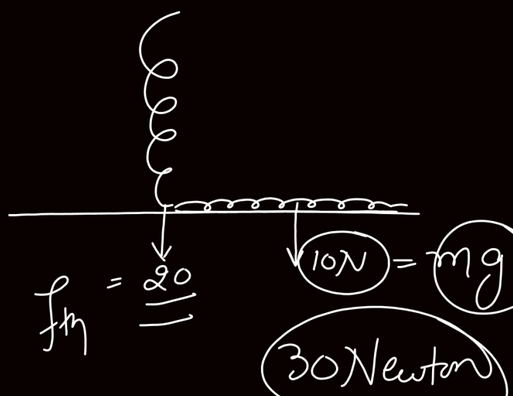 f_th = 20
10N = mg
30 Newton